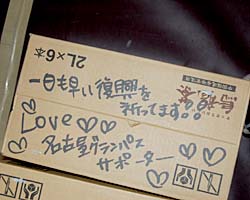 2L×6本
一日も早い復興を
祈ってます。。
Love♡♡♡
名古屋グランパス
サポーター